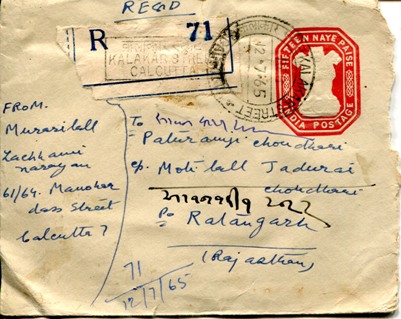 REGD
R 71
KALAKAR STREET
CALCUTTA
KALAKAR STREET
FIFTEEN NAYE PAISE
INDIA POSTAGE
FROM.
Murarilall
Lachhmi
narayan
61/64. Manohar
dass Street
Calcutta 7
To
Paturamji choudhari
c/o. Moti lall Jadurai
chohdhari
Po Ratangarh
(Rajasthan)
71
12/7/65